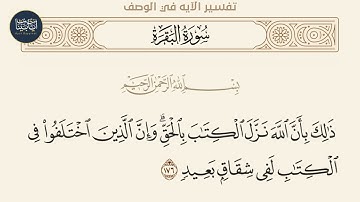 تفسير الآيه في الوصف
سُورَةُ البَقَرَةِ
بِسْمِ ٱللَّهِ ٱلرَّحْمَٰنِ ٱلرَّحِيمِ
ذَٰلِكَ بِأَنَّ ٱللَّهَ نَزَّلَ ٱلْكِتَٰبَ بِٱلْحَقِّۗ وَإِنَّ ٱلَّذِينَ ٱخْتَلَفُوا۟ فِى
ٱلْكِتَٰبِ لَفِى شِقَاقٍۭ بَعِيدٍ ١٧٦